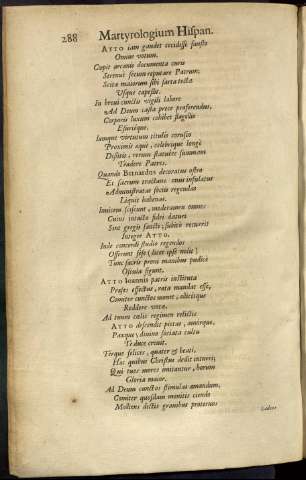 288 Martyrologium Hispan.
ATTO iam gaudet cecidisse fausto
Omine votum.
Cupit arcanis documenta curis
Serenus secum reputare Patrum;
Scita maiorum sibi sarta tecta
Usque capessit.
In brevi cunctis vigili labore
Ad Deum casta prece proferendus,
Corporis luxum cohibet flagello
Esurieque.
Iamque virtutum titulis coruscus
Proximis æquè, celebrique longè
Dissitis, rerum statuere summam
Tradere Patres.
Quando BERNARDUS decoratus ostro
Et sacrum tractans onus insulatus
Administratas socio regendas
Liquit habenas.
Invicem sciscunt, moderamen omnes
Cuius intacta fidei daturi
Sint gregis sancti; subitò recurrit
Integer ATTO.
Inde concordi studio regendos
Offerunt sese (dicet ipse nolit)
Tunc sacris proni manibus pudica
Oscula figunt.
ATTO Ioannis patris instituta
Prafes effectus, rata mandat esse,
Comiter cunctos monet, adicitque
Reddere vota.
Ad tuum cœlis regimen relictis
ATTO descendit pietas, amorque,
Paxque, divino sociata cultu
Te duce crevit.
Terque felices, quater & beati,
Hac quibus Christus dedit intueri;
Qui tuos mores imitantur, horum
Gloria maior.
Ad Deum cunctos stimulas amandum,
Comiter quosdam monitis ciendo
Molliens dictis gravibus protervos